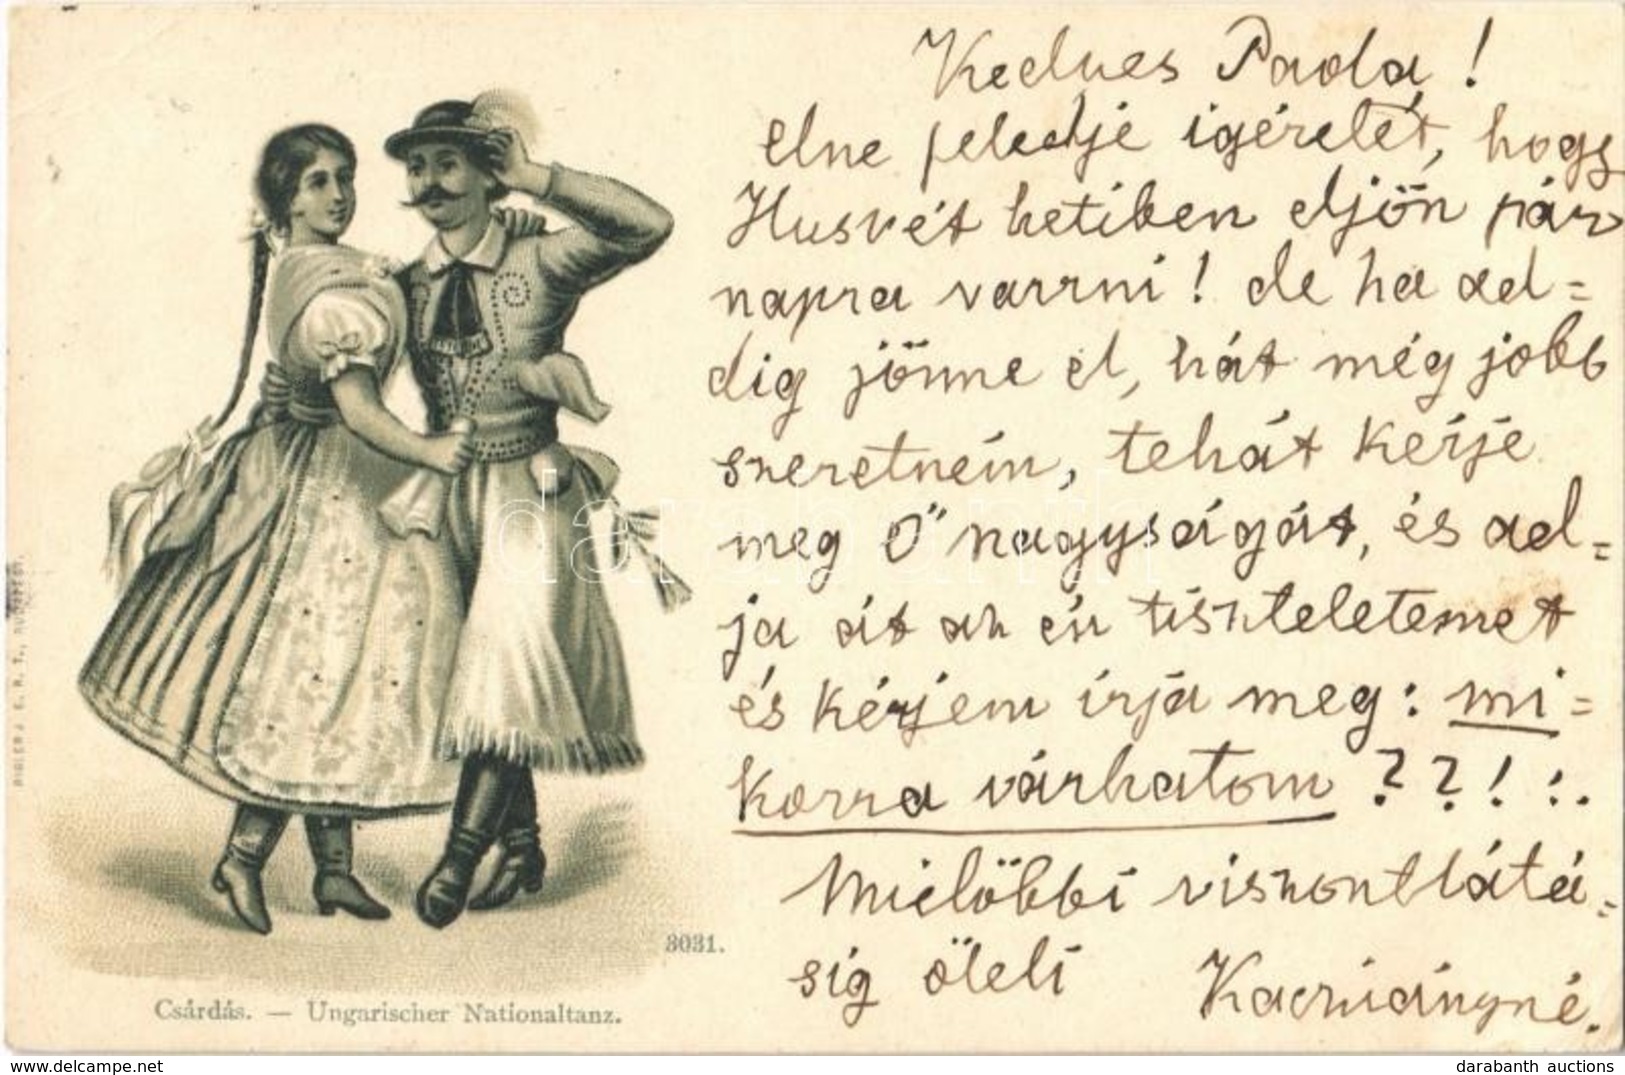 Kedves Paola!
elne feledje igéretét, hogy
Husvét hetiben eljön pár
napra varrni! de ha ad=
dig jönne el, hát még jobb
szeretném, tehát kérje
meg Ő nagyságát, és ad=
ja át az én tiszteletemet
és kérjem írja meg: mi=
korra várhatom ??!:.
Mielöbbi viszontlátá=
sig öleli
3031.
Csárdás. — Ungarischer Nationaltanz.
RIGLER J. E. R. T., BUDAPEST.
darabanth
Delcampe.net
darabanth auctions